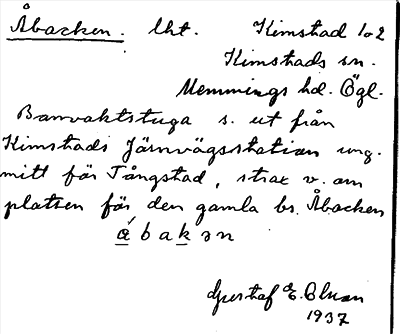 Åbacken. lht. Kimstad 1o2
Kimstads sn.
Memmings hd. Ögl.
Banvaktstuga s. ut från
Kimstads Järnvägsstation ung.
mitt för Tångstad, strax v. om
platsen för den gamla bs. Åbacken
å b a k ə n
Gustaf E. Olsson
1937